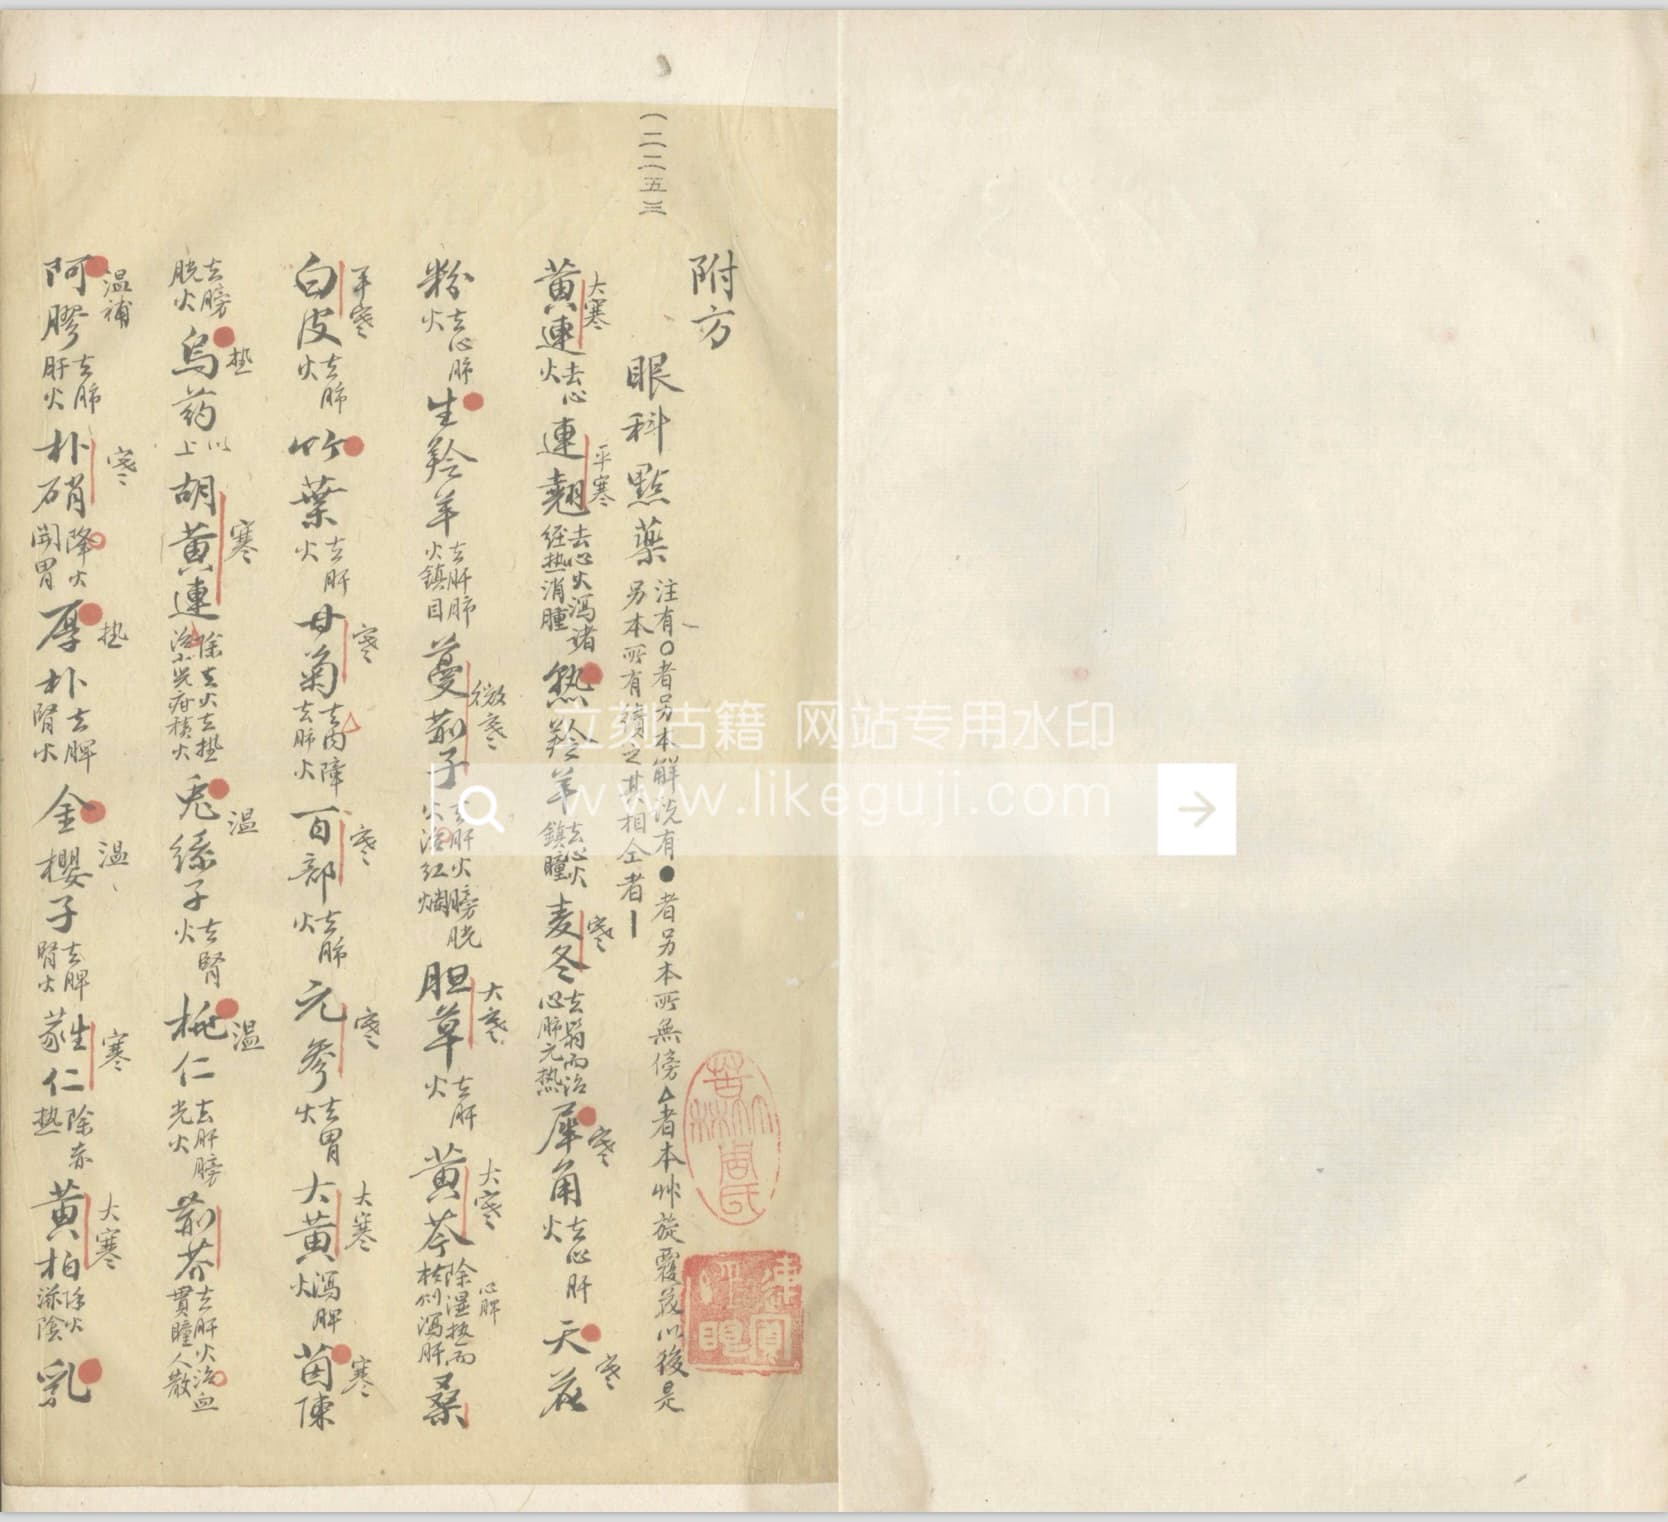 (二二五三
附方
眼科點藥 注有○者另本解說有●者另本所無傍△者本草旋覆花以後是另本所有續之其相仝者｜
黃連 大寒 去心火 連翹 平寒 去心火瀉諸經热消腫 熱羚羊 去心火鎮瞳 麦冬 寒 去翳而治心肺元热 犀角 寒 去心肝火 天花 寒
粉 去心肺火 生羚羊 去肝肺火鎮目 蔓荊子 微寒 去肝火膀胱火治紅爛 胆草 大寒 去肝火 黃芩 大寒 心脾 除濕热而瀉肝 桑
白皮 平寒 去肺火 竹葉 去肝火 甘菊 寒 去內障去肺火 百部 寒 去肺火 元參 寒 去胃火 大黃 大寒 瀉脾火 茵陳 寒
去膀胱火 烏药 热 以上 胡黃連 寒 除去火去热治小児疳積火 兎絲子 温 去腎火 桃仁 温 去肝膀光火 荊芥 去肝火治血貫瞳人散
阿膠 温補 去肺肝火 朴硝 寒 降火開胃 厚朴 热 去脾腎火 金櫻子 温 去脾腎火 蕤仁 寒 除赤热 黃柏 大寒 除火滋陰 乳
立刻古籍 网站专用水印
www.likeguji.com